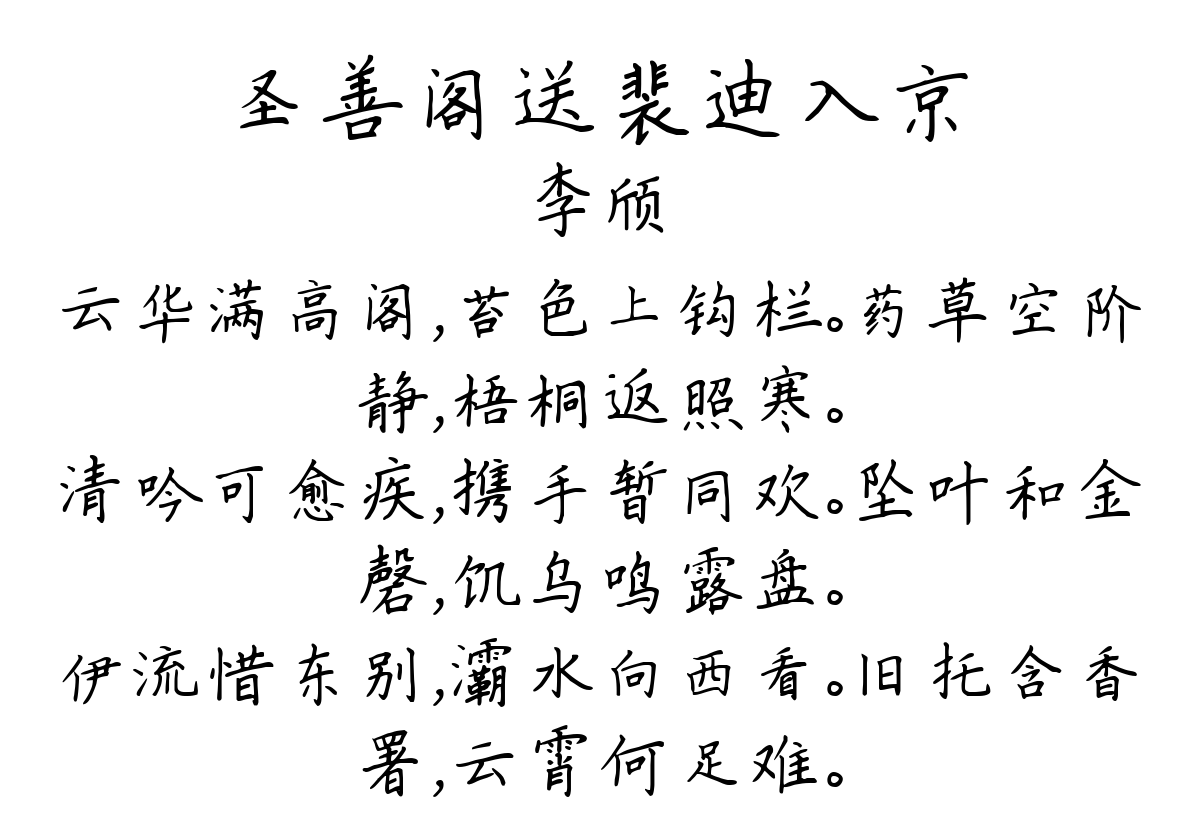 圣善阁送裴迪入京
李颀
云华满高阁,苔色上钩栏。药草空阶
静,梧桐返照寒。
清吟可愈疾,携手暂同欢。坠叶和金
磬,饥乌鸣露盘。
伊流惜东别,灞水向西看。旧托含香
署,云霄何足难。